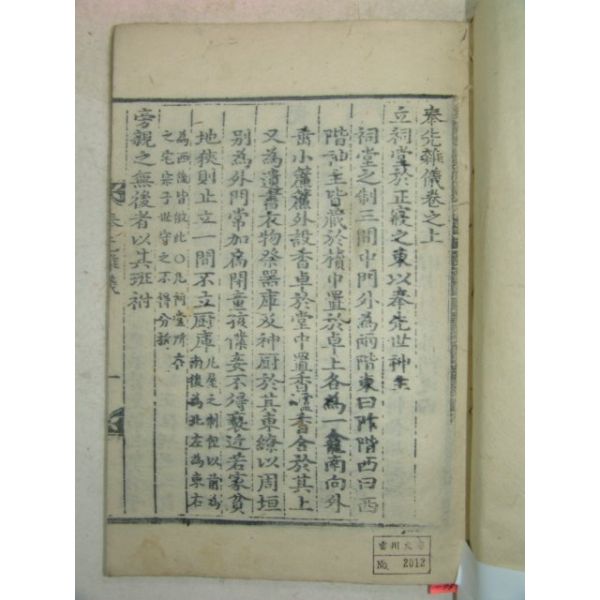 奉先雜儀卷之上
立祠堂於正寢之東以奉先世神主
祠堂之制三間中門外為兩階東曰阼階西曰西
階神主皆藏於櫝中置於卓上各為一龕南向外
垂小簾簾外設香卓於堂中置香爐香合於其上
又為遺書衣物祭器庫及神厨於其東繚以周垣
別為外門常加扃閉童孩僕妾不得褻近若家貧
地狹則止立一間不立厨庫凡屋之制但以前為
南後為北左為東右
為西後皆放此○凡祠堂所在
之宅宗子世守之不得分析
旁親之無後者以其班祔
奉先雜儀
一
雪川文庫
No. 2012